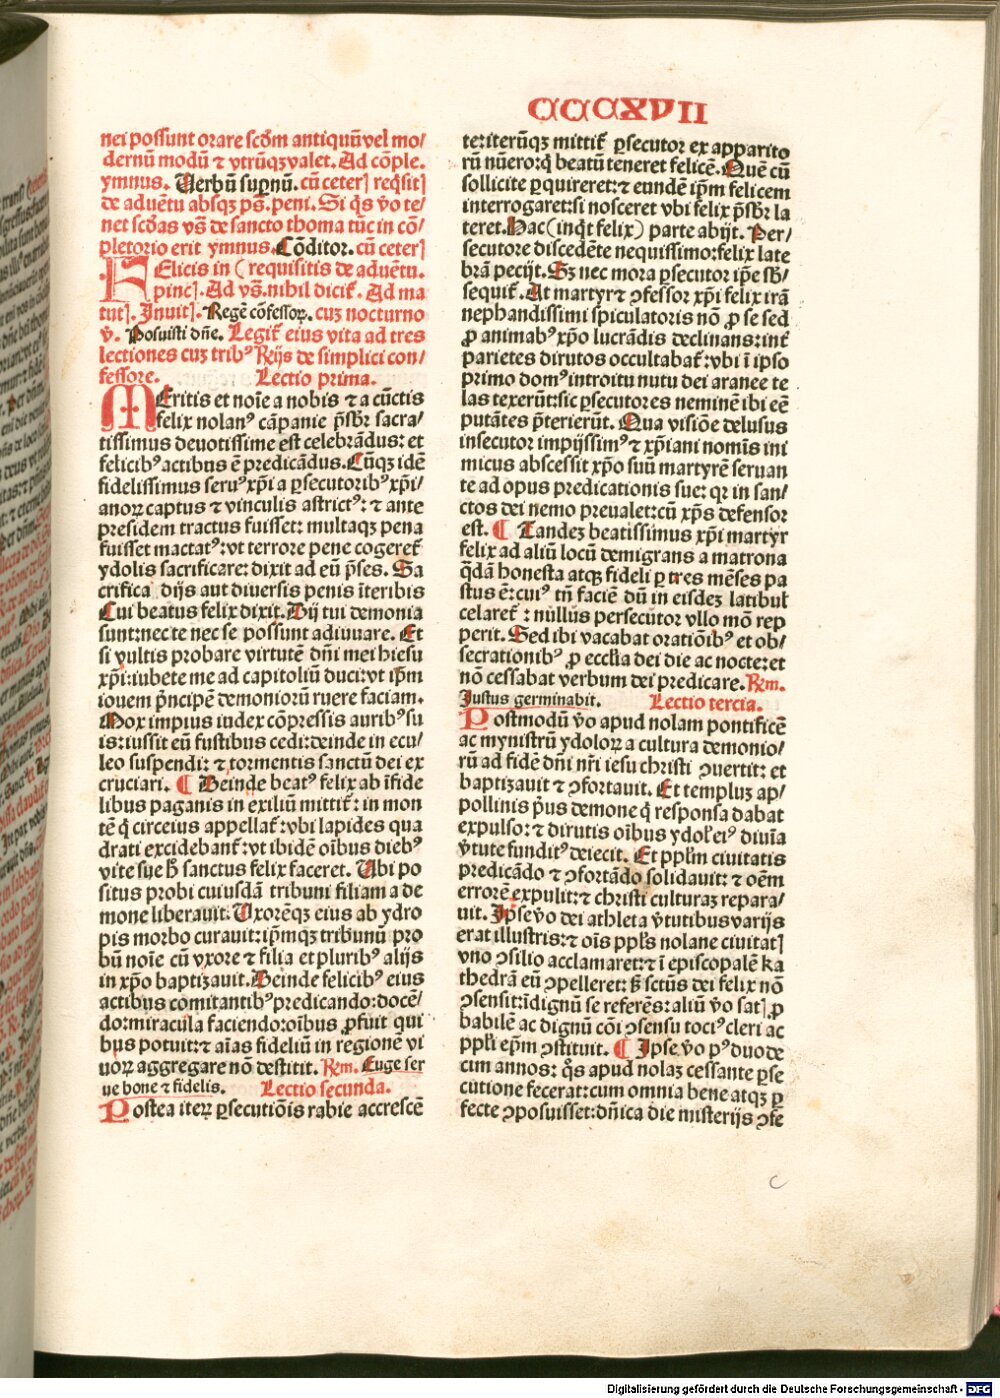 CCCXVII
nei possunt orare scḋm antiquū vel mo/
dernū modū ⁊ vtrūqȝ valet. Ad cōple.
ymnus. Verbū supnū. cū ceterꝭ reqͥsitꝭ
de aduētu absqȝ ps̄. peni. Si qͥs v̄o te/
net scḋas vs̄ de sancto thoma tūc in cō/
pletorio erit ymnus. Cōditor. cū ceterꝭ
FElicis in ( requisitis de aduētu.
pincꝭ. Ad vs̄. nihil dicit̄. Ad ma
tutꝭ. Inuitꝭ. Regē cōfessoꝝ. cuȝ nocturno
v̄. Posuisti dn̄e. Legit̄ eius vita ad tres
lectiones cuȝ tribꝰ R̄ijs de simplici con/
fessore. Lectio prima.
MEritis et noīe a nobis ⁊ a cūctis
felix nolanꝰ cāpanie p̄sbr̄ sacra/
tissimus deuotissime est celebrādus: et
felicibꝰ actibus ē predicādus. Cūqȝ idē
fidelissimus seruꝰ xp̄i a ꝑsecutoribꝰ xp̄i/
anoꝝ captus ⁊ vinculis astrictꝰ: ⁊ ante
presidem tractus fuisset: multaqȝ pena
fuisset mactatꝰ: vt terrore pene cogeret̄
ydolis sacrificare: dixit ad eū p̄ses. Sa
crifica dijs aut diuersis penis īteribis
Cui beatus felix dixit. Dij tui demonia
sunt: nec te nec se possunt adiuuare. Et
si vultis probare virtutē dn̄i mei hiesu
xp̄i: iubete me ad capitoliū duci: vt ip̄m
iouem p̄ncipē demoniorū ruere faciam.
Mox impius iudex cōpressis auribꝰ su
is: iussit eū fustibus cedi: deinde in ecu/
leo suspendi: ⁊ tormentis sanctū dei ex
cruciari. ¶ Deinde beatꝰ felix ab īfide
libus paganis in exiliū mittit̄: in mon
tē q̄ circeius appellat̄: vbi lapides qua
drati excidebant̄: vt ibidē oībus diebꝰ
vite sue h̄ sanctus felix faceret. Ubi po
situs probi cuiusdā tribuni filiam a de
mone liberauit. Uxorēqȝ eius ab ydro
pis morbo curauit: ip̄mqȝ tribunū pro
bū noīe cū vxore ⁊ filia et pluribꝰ alijs
in xp̄o baptizauit. Deinde felicibꝰ eius
actibus comitantibꝰ predicando: docē/
do: miracula faciendo: oībus ꝓfuit qui
bus potuit: ⁊ aīas fideliū in regionē vi
uoꝝ aggregare nō destitit. R̄m. Euge ser
ue bone ⁊ fidelis. Lectio secunda.
Postea iteꝝ ꝑsecutiōis rabie accrescē
te: iterūqȝ mittit̄ ꝑsecutor ex apparito
rū nūero: q̄ beatū teneret felicē. Quē cū
sollicite ꝑquireret: ⁊ eundē ip̄m felicem
interrogaret: si nosceret vbi felix p̄sbr̄ la
teret. Hac (inqͥt felix) parte abijt. Per/
secutore discedēte nequissimo: felix late
brā pecijt. Sȝ nec mora ꝑsecutor ip̄e sb̄/
sequit̄. At martyr ⁊ ꝯfessor xp̄i felix irā
nephandissimi spiculatoris nō ꝓ se sed
ꝓ animabꝰ xp̄o lucrādis declinans: int̄
parietes dirutos occultabat̄: vbi ī ipso
primo domꝰ introitu nutu dei aranee te
las texerūt: sic ꝑsecutores neminē ibi eē
putātes p̄terierūt. Qua visiōe delusus
insecutor impijssimꝰ ⁊ xp̄iani nomīs ini
micus abscessit xp̄o suū martyrē seruan
te ad opus predicationis sue: qr in san/
ctos dei nemo preualet: cū xp̄s defensor
est. ¶ Tandeȝ beatissimus xp̄i martyr
felix ad aliū locū demigrans a matrona
q̄dā honesta atqȝ fideli ꝑ tres mēses pa
stus ē: cuiꝰ tn̄ faciē dū in eisdeȝ latibul̄
celaret̄: nullus persecutor vllo mō rep
perit. Sed ibi vacabat oratiōibꝰ et ob/
secrationibꝰ ꝓ eccl̄ia dei die ac nocte: et
nō cessabat verbum dei predicare. R̄m.
Justus germinabit. Lectio tercia.
Postmodū v̄o apud nolam pontificē
ac mynistrū ydoloꝝ a cultura demonio/
rū ad fidē dn̄i nr̄i iesu christi ꝯuertit: et
baptizauit ⁊ ꝯfortauit. Et templuȝ ap/
pollinis p̄us demone q̄ responsa dabat
expulso: ⁊ dirutis oībus ydol̄ eiꝰ diuīa
v̄tute funditꝰ deiecit. Et pplm̄ ciuitatis
predicādo ⁊ ꝯfortādo solidauit: ⁊ oēm
errorē expulit: ⁊ christi culturaȝ repara/
uit. Ipse v̄o dei athleta v̄tutibus varijs
erat illustris: ⁊ oīs ppls̄ nolane ciuitatꝭ
vno ꝯsilio acclamaret: ⁊ ī episcopalē ka
thedrā eū ꝯpelleret: h̄ sctūs dei felix nō
ꝯsensit: īdignū se referēs: aliū v̄o satꝭ ꝓ
babilē ac dignū cōi ꝯsensu tociꝰ cleri ac
ppl̄i ep̄m ꝯstituit. ¶ Ipse v̄o pꝰ duode
cim annos: qͦs apud nolaȝ cessante ꝑse
cutione fecerat: cum omnia bene atqȝ ꝑ
fecte ꝯposuisset: dn̄ica die misterijs ꝯfe
c
Digitalisierung gefördert durch die Deutsche Forschungsgemeinschaft - DFG